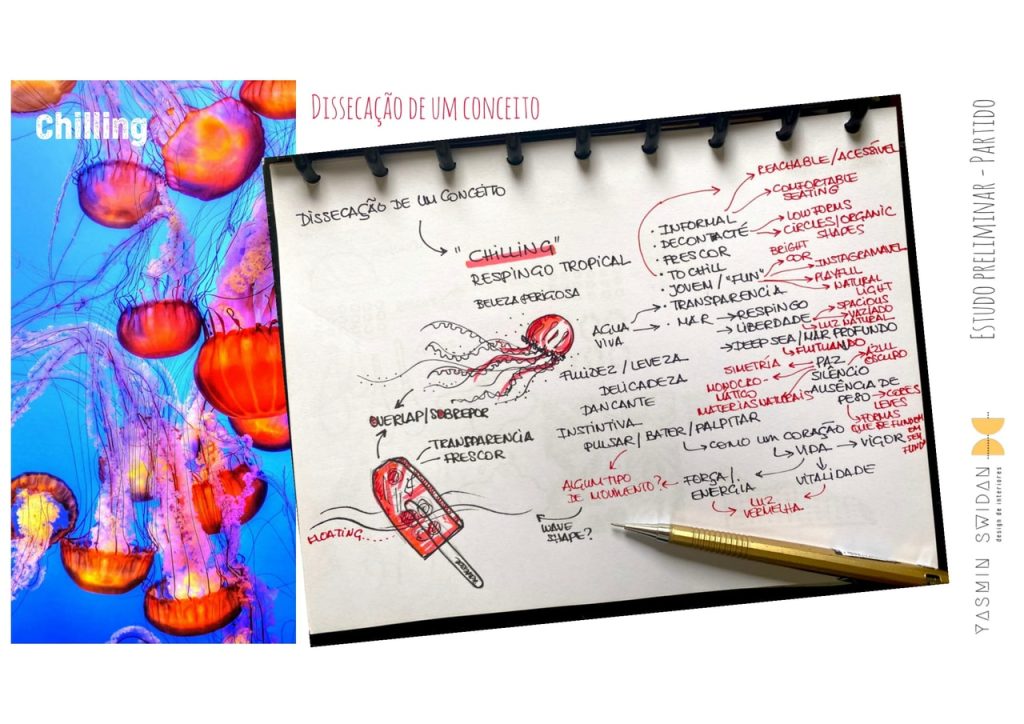 Chilling
DISSECAÇÃO DE UM CONCEITO
DISSECAÇÃO DE UM CONCEITO
"CHILLING"
RESPINGO TROPICAL
BELEZA PERIGOSA
OVERLAP/SOBREPOR
TRANSPARENCIA
FRESCOR
FLOATING......
AGUA
VIVA
FLUIDEZ / LEVEZA
DELICADEZA
DANCANTE
INSTINTIVA
PULSAR / BATER / PALPITAR
ALGUM TIPO
DE MOVIMENTO?
WAVE
SHAPE?
• INFORMAL
• DECONTACTÉ
• FRESCOR
• TO CHILL
• JOVEM / "FUN"
• TRANSPARENCIA
• MAR
RESPINGO
LIBERDADE
DEEP SEA / MAR PROFUNDO
REACHABLE / ACESSÍVEL
COMFORTABLE
SEATING
LOW FORMS
CIRCLES/ORGANIC
SHAPES
BRIGHT
COR
INSTAGRAMMEL
PLAYFUL
NATURAL
LIGHT
SPACIOUS
VAZIADO
LUZ NATURAL
FLUTUANDO
PAZ
SILÊNCIO
AZUL
ESCURO
SIMETRIA
MONOCRO-
MATICO
MATERIAS NATURAIS
AUSÊNCIA DE
PESO
CORES
LEVES
FORMAS
QUE SE FUNDEM
EM
SEU
FUNDO
COMO UM CORAÇÃO
VIDA
VIGOR
VITALIDADE
FORÇA/
ENERGIA
LUZ
VERMELHA
ESTUDO PRELIMINAR - PARTIDO
YASMIN SWIDAN
design de interiores